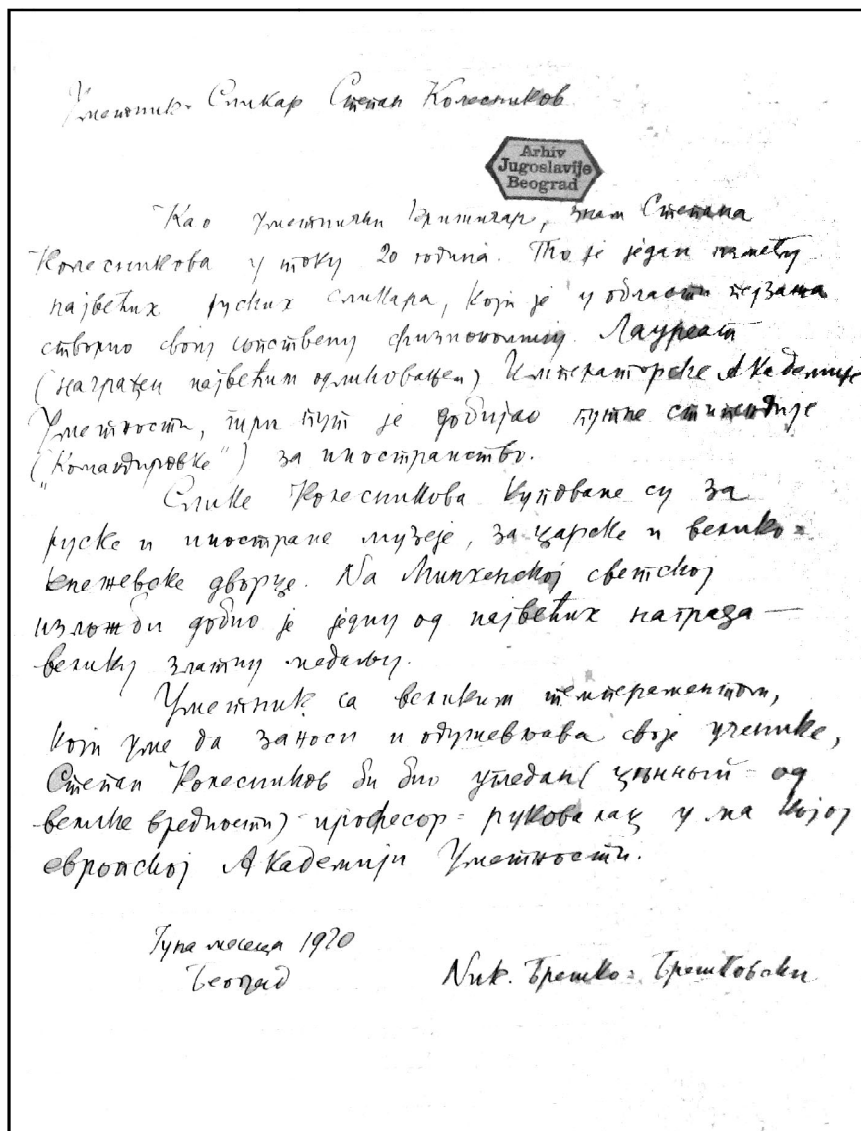 Уметник-Сликар Степан Колесников
Arhiv
Jugoslavije
Beograd
Као уметнички критичар, знам Степана
Колесникова у току 20 година. То је један између
највећих руских сликара, који је у области пејзажа
створио своју сопствену физиономију. Лауреат
(награђен највећим одликовањем) Императорске Академије
Уметности, три пут је добијао путне стипендије
("Командировке") за иностранство.
Слике Колесникова куповане су за
руске и иностране музеје, за царске и велико=
кнежевске дворце. На Минхенској светској
изложби добио је једну од највећих награда —
велику златну медаљу.
Уметник са великим темпераментом,
који уме да заноси и одушевљава своје ученике,
Степан Колесников би био угледан (цѣнный - од
велике вредности) професор = руковалац у ма којој
европској Академији Уметности.
Јула месеца 1920
Београд
Ник. Брешко = Брешковски